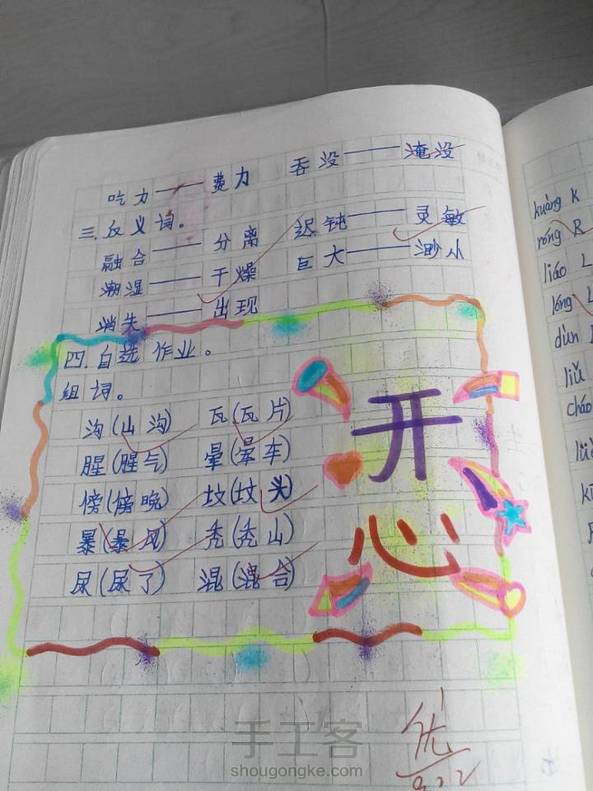 吃力——费力 吞没——淹没
三.反义词。
融合——分离 迟钝——灵敏
潮湿——干燥 巨大——渺小
消失——出现
四.自选作业。
组词。
沟(山沟) 瓦(瓦片)
腥(腥气) 晕(晕车)
傍(傍晚) 坟(坟头)
暴(暴风) 秃(秃山)
尿(尿了) 混(混合)
开
心
优
9.22
手工客
shougongke.com
kuàng K
nóng R
liáo L
lóng L
dùn
liǔ
cháo